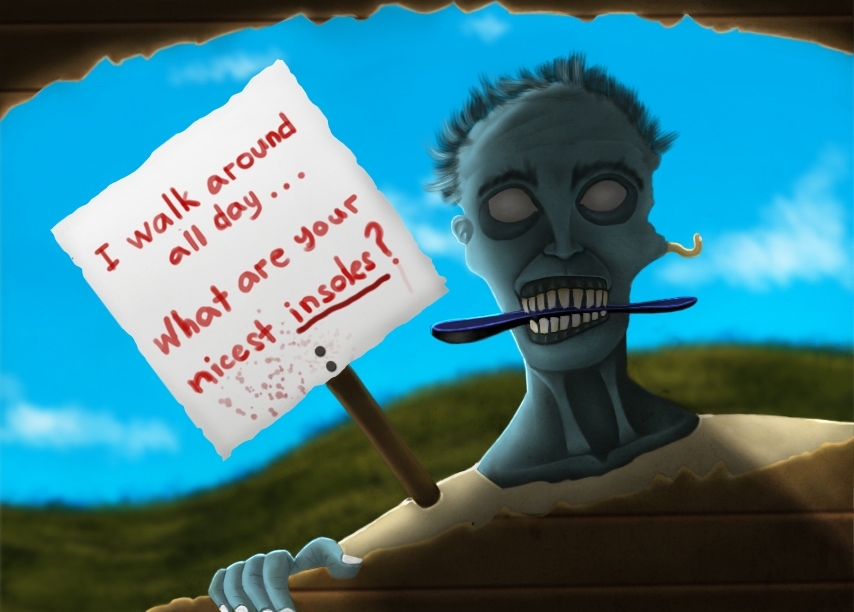 I walk around
all day...
What are your
nicest insoles?